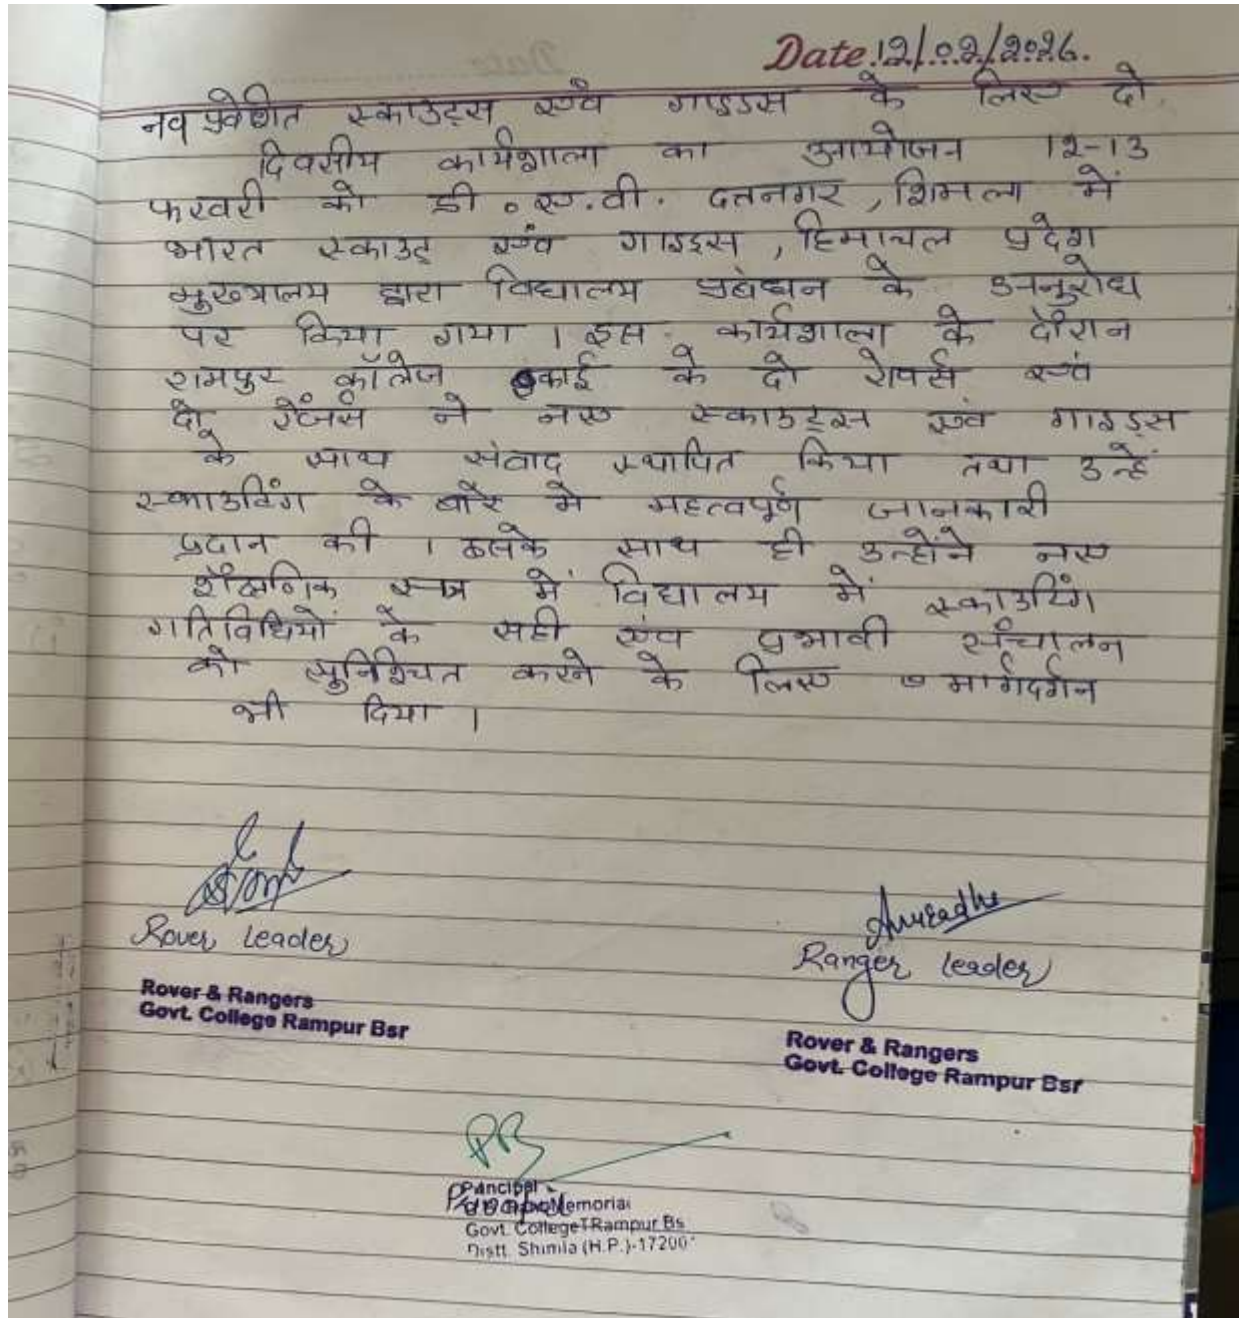 Date 12/02/2026.
नव प्रवेशित स्काउट्स एवं गाइडस के लिए दो
दिवसीय कार्यशाला का आयोजन 12-13
फरवरी को डी.ए.वी. दत्तनगर, शिमला में
भारत स्काउट एवं गाइड्स, हिमाचल प्रदेश
मुख्यालय द्वारा विद्यालय प्रबंधन के अनुरोध
पर किया गया । इस कार्यशाला के दौरान
रामपुर कॉलेज इकाई के दो रोवर्स एवं
दो रेंजर्स ने नए स्काउट्स एवं गाइड्स
के साथ संवाद स्थापित किया तथा उन्हें
स्काउटिंग के बारे मे महत्वपूर्ण जानकारी
प्रदान की । इसके साथ ही उन्होंने नए
शैक्षणिक सत्र में विद्यालय में स्काउटिंग
गतिविधियों के सही एवं प्रभावी संचालन
को सुनिश्चित करने के लिए मार्गदर्शन
भी दिया ।
Rover Leader
Anuradha
Ranger leader
Rover & Rangers
Govt. College Rampur Bsr
Rover & Rangers
Govt. College Rampur Bsr
PB
Principal
Memorial
Govt. College Rampur Bs
Distt. Shimla (H.P.)-17200